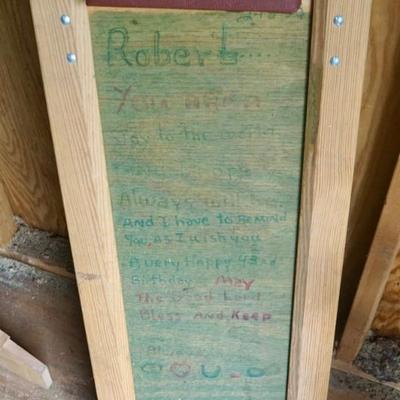 Robert....
You are a
Joy to the world
Always will be.
And I have to Remind
You, As I wish you
A very Happy 43rd
Birthday. May
The Good Lord
Bless And Keep